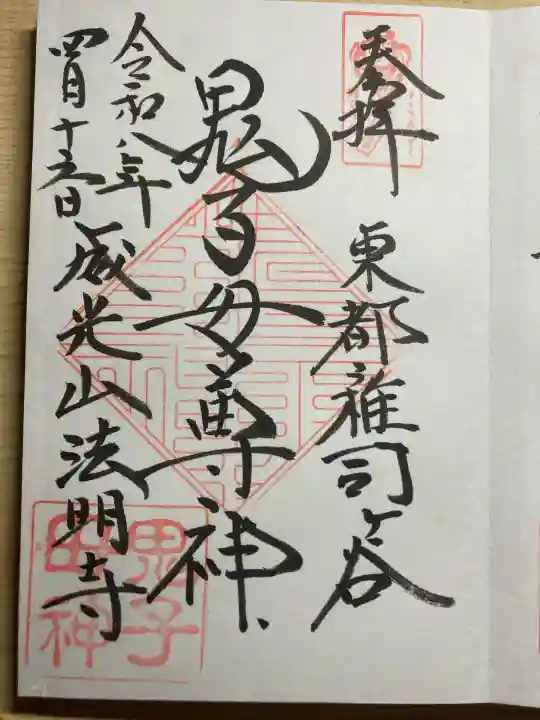 奉拝
東都雑司ヶ谷
鬼子母尊神
令和八年
四月十五日
威光山法明寺
鬼子
母神